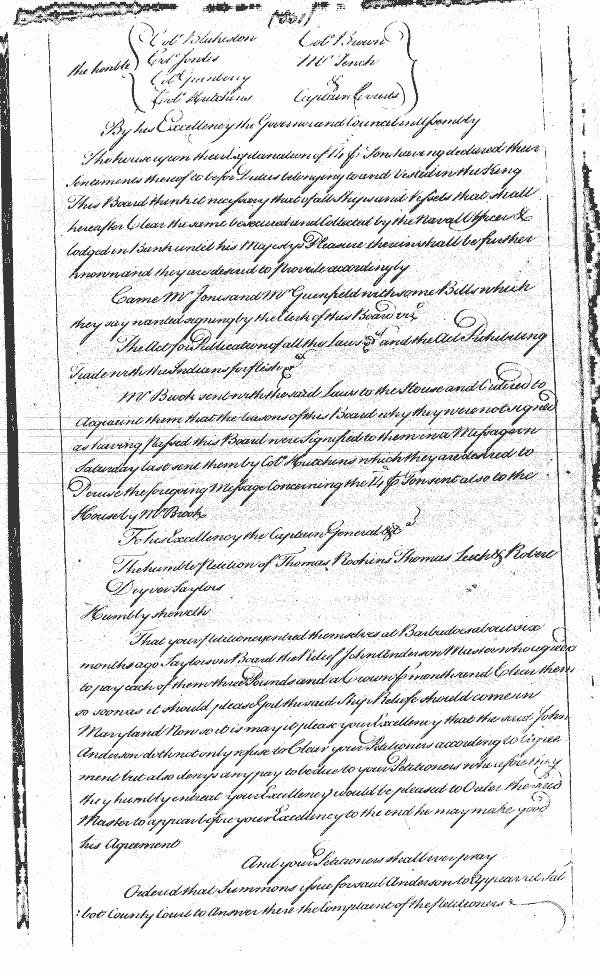 the honble
Colo Blakiston Colo Brown
Colo Jowles Mr Tench
Colo &
Colo Hutchins Captain Courts
By his Excellency the Governor and Council in Assembly
The house upon their Explanation of 14 Ton having declared their
Sentiments thereof to be for Duties belonging to and Vested in the King
This Board think it necessary that of all Ships and Vessels that shall
hereafter Clear the same be secured and Collected by the Naval Officer &
lodged in Bank until his Majestys Pleasure therein shall be further
known and they are desired to Provide accordingly
Came Mr Jones and Mr Greenfield with some Bills which
they say wanted signing by the Clerk of this Board viz
The Act for Publication of all the Laws &c and the Act Prohibiting
Trade with the Indians for flesh &c
Mr Brook sent with the said Laws to the House and Ordered to
Acquaint them that the reasons of this Board why they were not signed
as having passed this Board were Signified to them in a Message on
Saturday last sent them by Colo Hutchins which they are desired to
Peruse the foregoing Message Concerning the 14 Ton sent also to the
House by Mr Brook
To his Excellency the Captain General &c
The humble Petition of Thomas Thomas Leech & Robert
Saylors
Humbly sheweth
That your Petitioners entred themselves at Barbadoes about six
months ago Saylors on Board the Relief John Anderson Master who agreed
to pay each of them three Pounds and a Crown month and Clear them
so soon as it should please God the said Ship Relief should come in
Maryland Now so it is may it please your Excellency that the said John
Anderson doth not only refuse to Clear your Petitioners according to Agree
ment but also denys any pay to be due to your Petitioners wherefore may
they humbly entreat your Excellency would be pleased to Order the said
Master to appear before your Excellency to the end he may make good
his Agreement
And your Petitioners shall ever pray
Ordered that Summons issue for said Anderson to Appear at Tal
bot County Court to Answer there the Complaint of the Petitioners